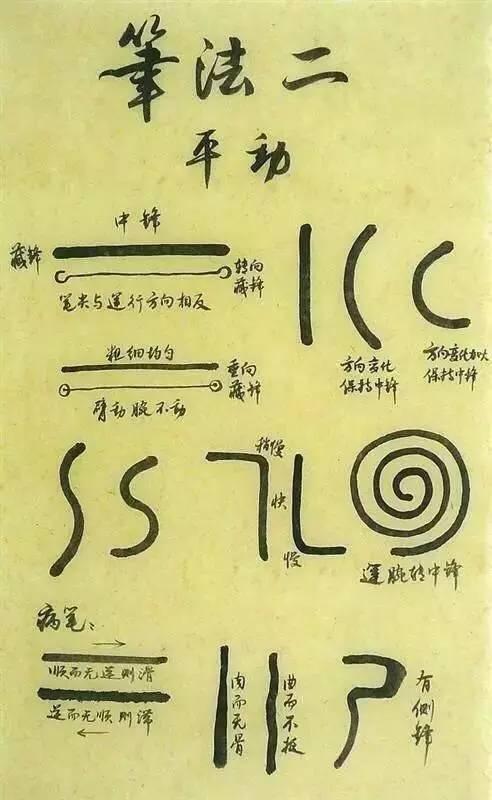 筆法二
平動
中锋
藏锋
转向
藏锋
笔尖与逆行方向相反
粗细均匀
垂向
藏锋
臂动腕不动
方向变化
保持中锋
方向变化加大
保持中锋
稍慢
快
慢
运腕转中锋
病笔：
顺而无逆则滑
逆而无顺则滞
肉而无骨
曲而不挺
有侧锋